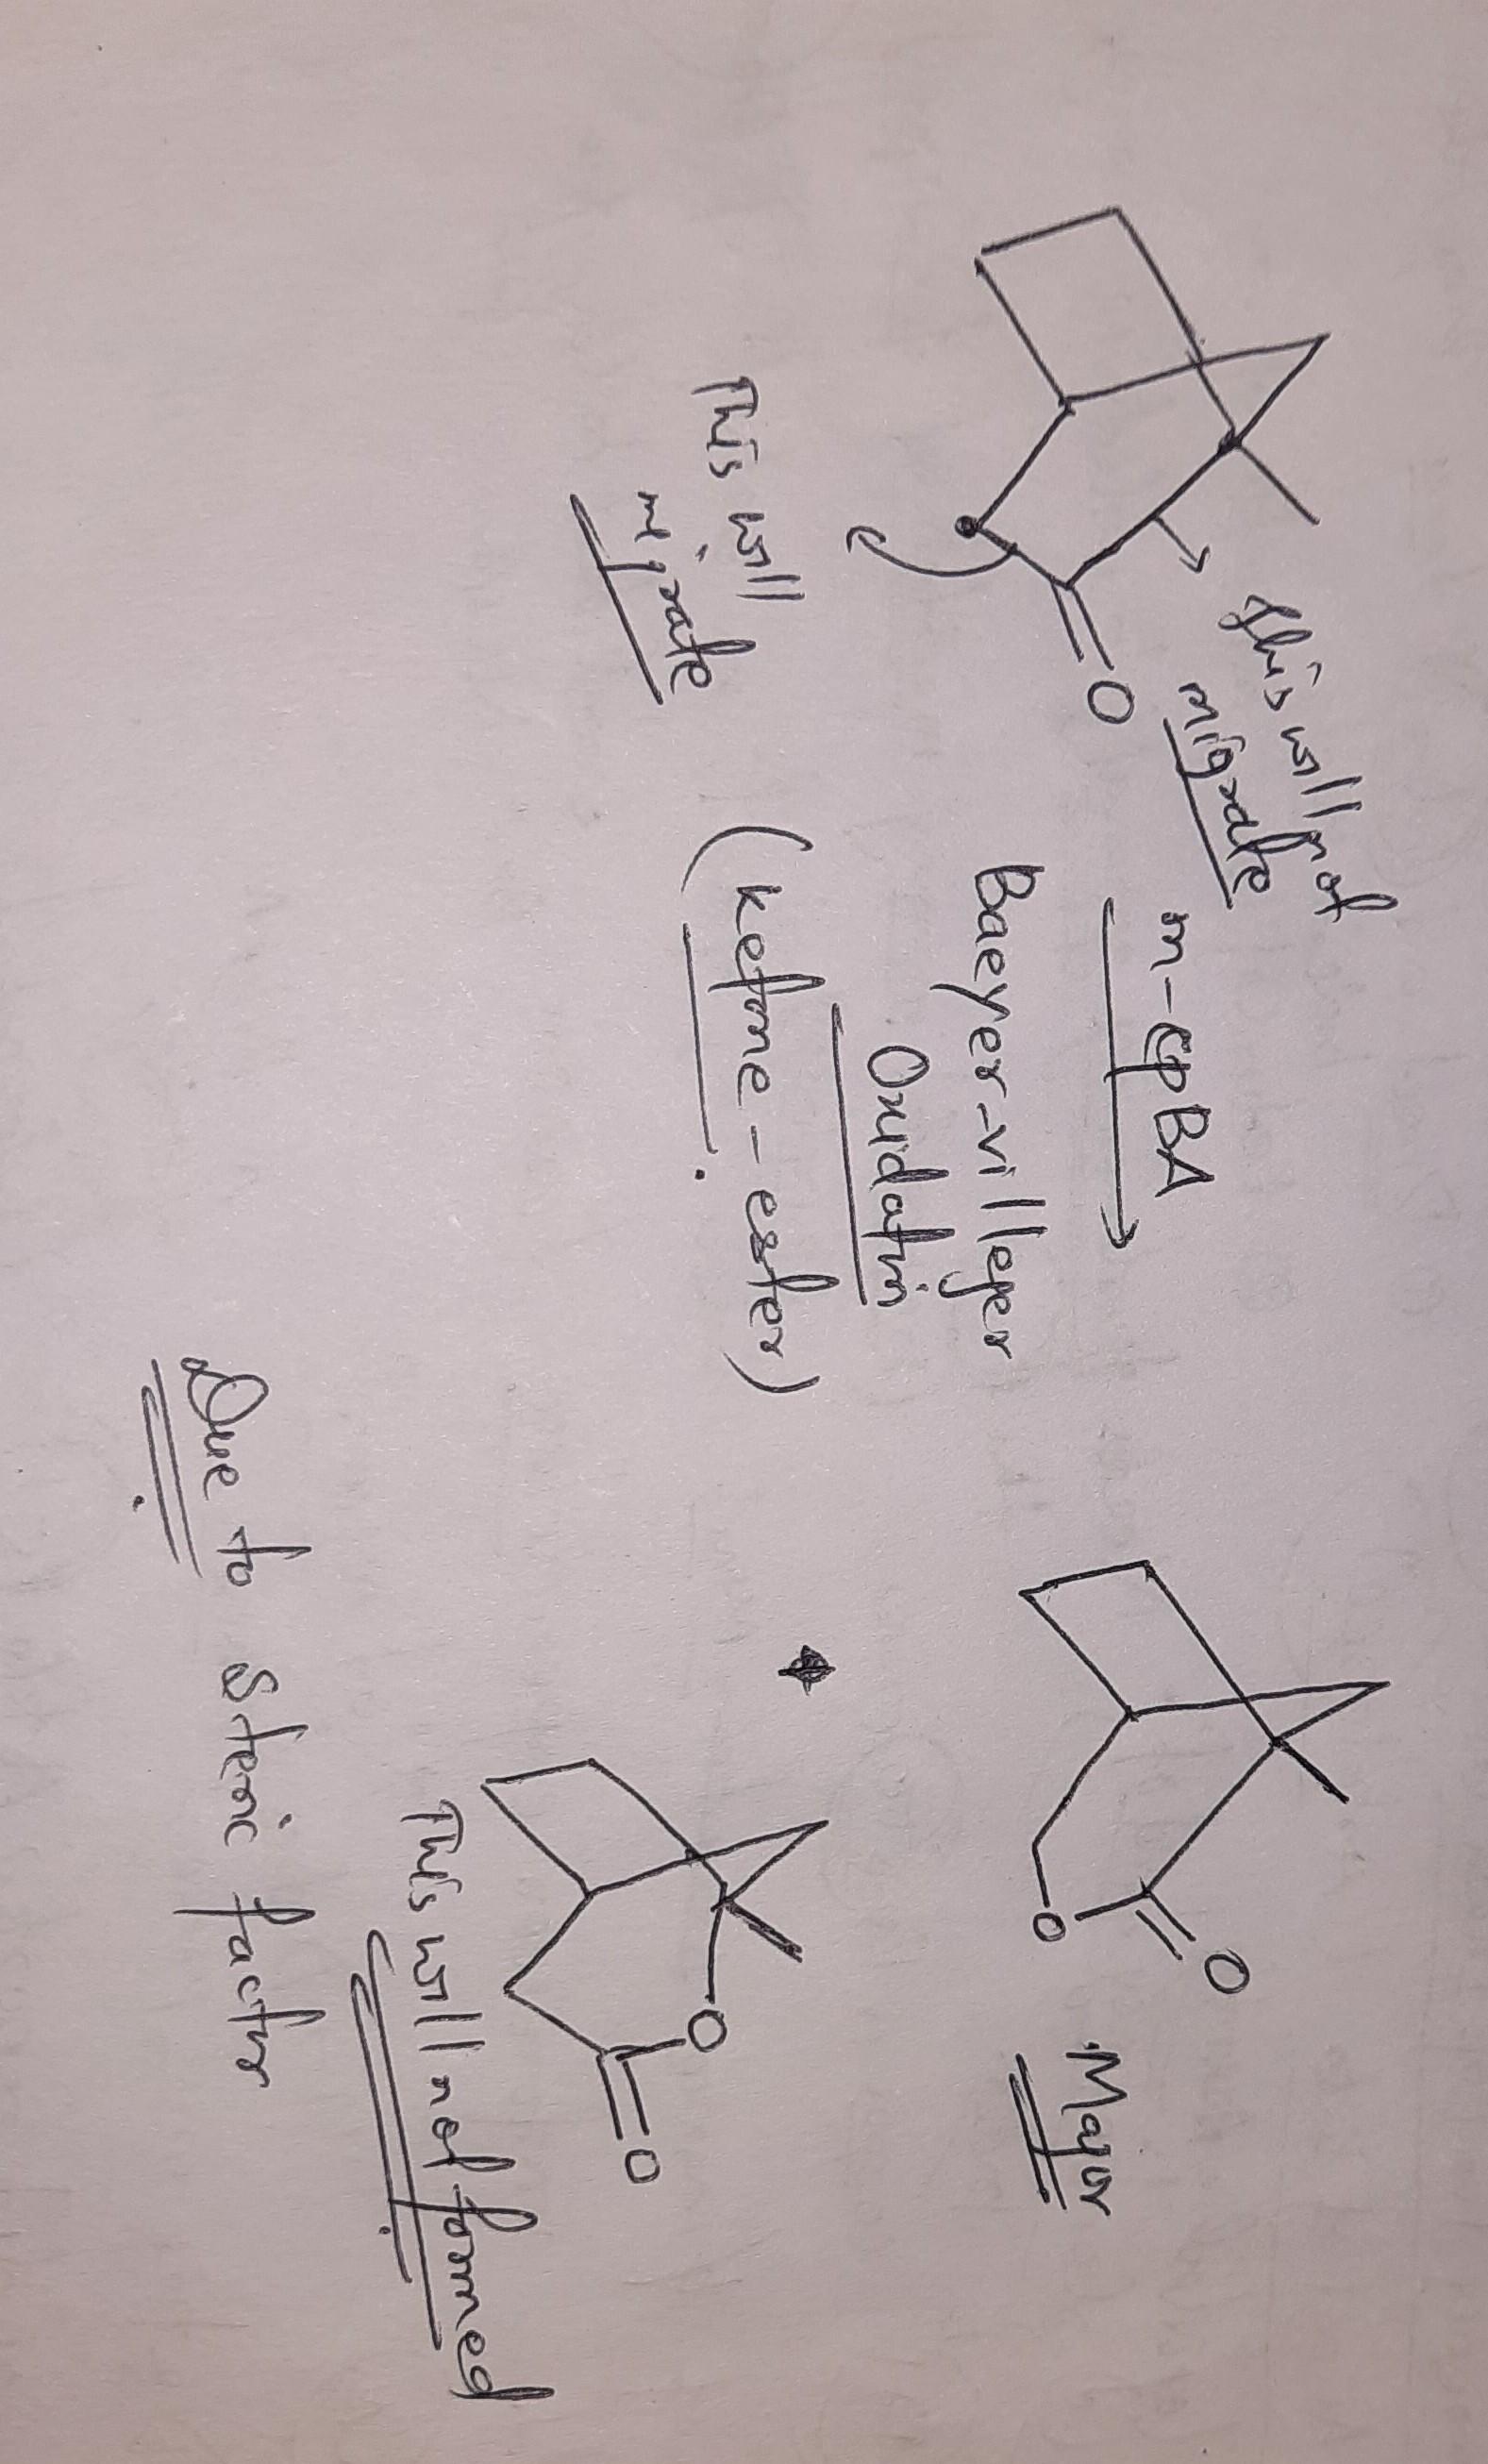 This will not
migrate
O
This will
migrate
m-cpBA
Baeyer-villeger
Oxidatin
(ketone-ester)
O
O
Major
O
O
This will not formed
Due to steric factor